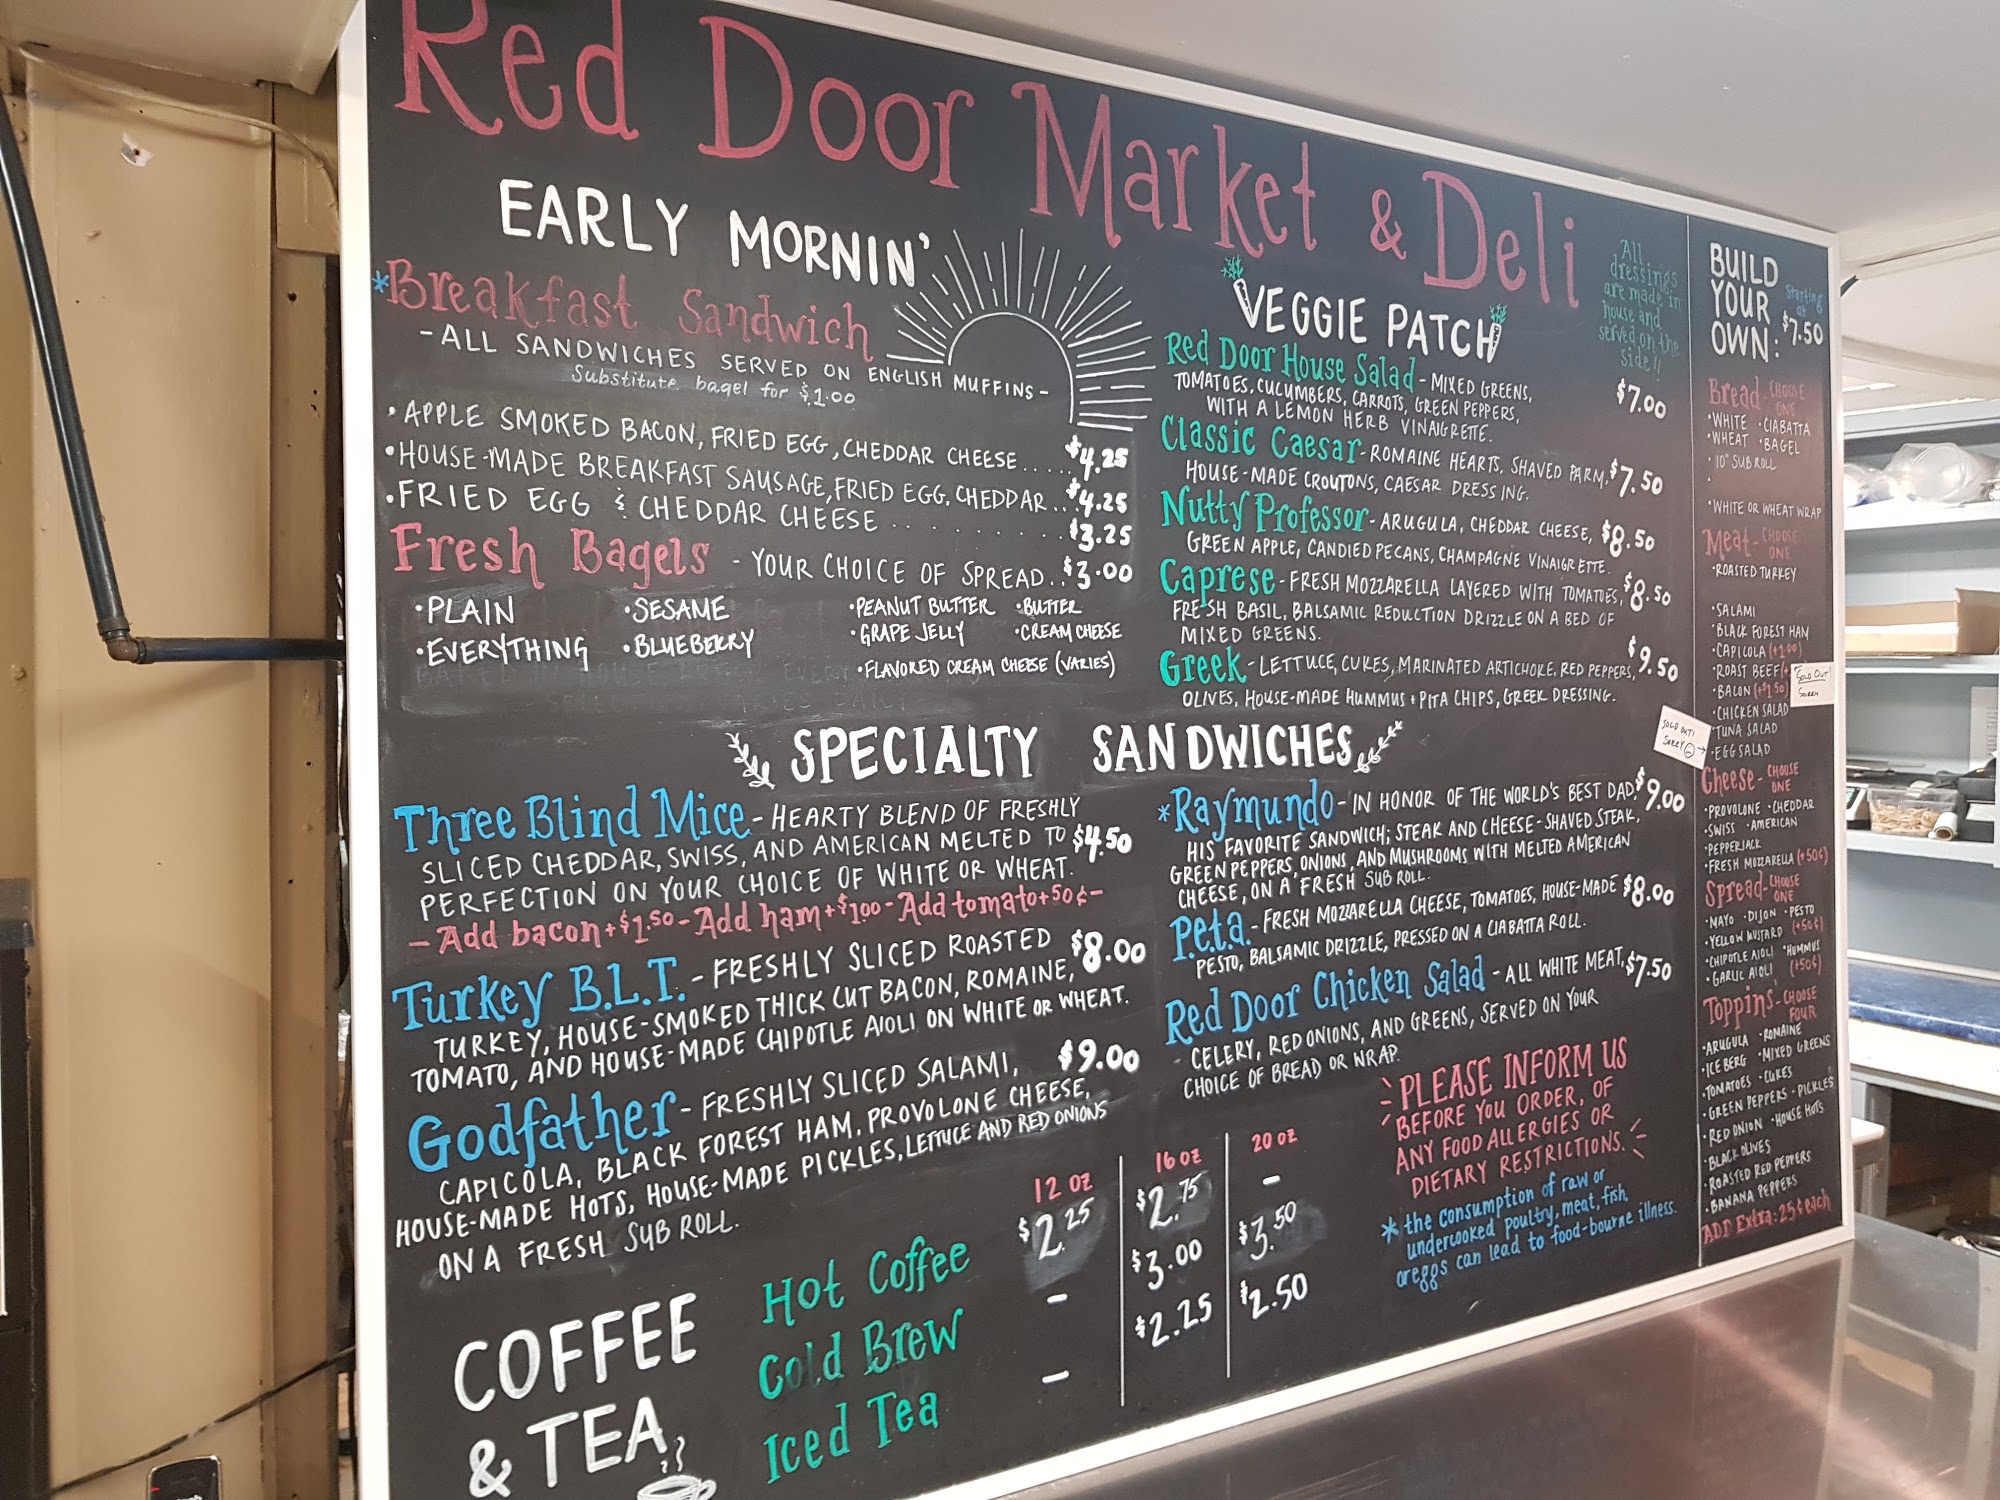 Red Door Market & Deli
EARLY MORNIN'
*Breakfast Sandwich
-ALL SANDWICHES SERVED ON ENGLISH MUFFINS-
Substitute bagel for $1.00
•APPLE SMOKED BACON, FRIED EGG, CHEDDAR CHEESE..... $4.25
•HOUSE-MADE BREAKFAST SAUSAGE, FRIED EGG, CHEDDAR... $4.25
•FRIED EGG & CHEDDAR CHEESE ........ $3.25
Fresh Bagels - YOUR CHOICE OF SPREAD.. $3.00
•PLAIN •SESAME •PEANUT BUTTER •BUTTER
•EVERYTHING •BLUEBERRY •GRAPE JELLY •CREAM CHEESE
•FLAVORED CREAM CHEESE (VARIES)
VEGGIE PATCH
All
dressings
are made in
house and
served on the
side!!
Red Door House Salad - MIXED GREENS, $7.00
TOMATOES, CUCUMBERS, CARROTS, GREEN PEPPERS,
WITH A LEMON HERB VINAIGRETTE.
Classic Caesar - ROMAINE HEARTS, SHAVED PARM, $7.50
HOUSE-MADE CROUTONS, CAESAR DRESSING.
Nutty Professor - ARUGULA, CHEDDAR CHEESE, $8.50
GREEN APPLE, CANDIED PECANS, CHAMPAGNE VINAIGRETTE.
Caprese - FRESH MOZZARELLA LAYERED WITH TOMATOES, $8.50
FRESH BASIL, BALSAMIC REDUCTION DRIZZLE ON A BED OF
MIXED GREENS.
Greek - LETTUCE, CUKES, MARINATED ARTICHOKE, RED PEPPERS, $9.50
OLIVES, HOUSE-MADE HUMMUS + PITA CHIPS, GREEK DRESSING.
SPECIALTY SANDWICHES
Three Blind Mice - HEARTY BLEND OF FRESHLY
SLICED CHEDDAR, SWISS, AND AMERICAN MELTED TO $4.50
PERFECTION ON YOUR CHOICE OF WHITE OR WHEAT.
-Add bacon+$1.50-Add ham+$1.00-Add tomato+50¢-
Turkey B.L.T. - FRESHLY SLICED ROASTED $8.00
TURKEY, HOUSE-SMOKED THICK CUT BACON, ROMAINE,
TOMATO, AND HOUSE-MADE CHIPOTLE AIOLI ON WHITE OR WHEAT.
Godfather - FRESHLY SLICED SALAMI, $9.00
CAPICOLA, BLACK FOREST HAM, PROVOLONE CHEESE,
HOUSE-MADE HOTS, HOUSE-MADE PICKLES, LETTUCE AND RED ONIONS
ON A FRESH SUB ROLL.
*Raymundo - IN HONOR OF THE WORLD'S BEST DAD, $9.00
HIS FAVORITE SANDWICH; STEAK AND CHEESE-SHAVED STEAK,
GREEN PEPPERS, ONIONS, AND MUSHROOMS WITH MELTED AMERICAN
CHEESE, ON A FRESH SUB ROLL.
P.e.t.a. - FRESH MOZZARELLA CHEESE, TOMATOES, HOUSE-MADE $8.00
PESTO, BALSAMIC DRIZZLE, PRESSED ON A CIABATTA ROLL.
Red Door Chicken Salad - ALL WHITE MEAT, $7.50
- CELERY, RED ONIONS, AND GREENS, SERVED ON YOUR
CHOICE OF BREAD OR WRAP.
COFFEE
& TEA
12 OZ 16 OZ 20 OZ
Hot Coffee $2.25 $2.75 -
Cold Brew - $3.00 $3.50
Iced Tea - $2.25 $2.50
PLEASE INFORM US
BEFORE YOU ORDER, OF
ANY FOOD ALLERGIES OR
DIETARY RESTRICTIONS.
* the consumption of raw or
undercooked poultry, meat, fish,
or eggs can lead to food-bourne illness.
BUILD
YOUR
OWN:
Starting
at
$7.50
Bread - CHOOSE
ONE
•WHITE •CIABATTA
•WHEAT •BAGEL
•10" SUB ROLL
•
•WHITE OR WHEAT WRAP
Meat - CHOOSE
ONE
•ROASTED TURKEY
•SALAMI
•BLACK FOREST HAM
•CAPICOLA (+1.00)
•ROAST BEEF (+
•BACON (+$1.50)
•CHICKEN SALAD
•TUNA SALAD
•EGG SALAD
SOLD OUT!
SORRY
SOLD OUT!
SORRY
Cheese - CHOOSE
ONE
•PROVOLONE •CHEDDAR
•SWISS •AMERICAN
•PEPPERJACK
•FRESH MOZZARELLA (+50¢)
Spread - CHOOSE
ONE
•MAYO •DIJON •PESTO
•YELLOW MUSTARD (+50¢)
•CHIPOTLE AIOLI •HUMMUS
•GARLIC AIOLI (+50¢)
Toppins' - CHOOSE
FOUR
•ARUGULA •ROMAINE
•ICEBERG •MIXED GREENS
•TOMATOES •CUKES
•GREEN PEPPERS •PICKLES
•RED ONION •HOUSE HOTS
•BLACK OLIVES
•ROASTED RED PEPPERS
•BANANA PEPPERS
ADD Extra: 25¢ each